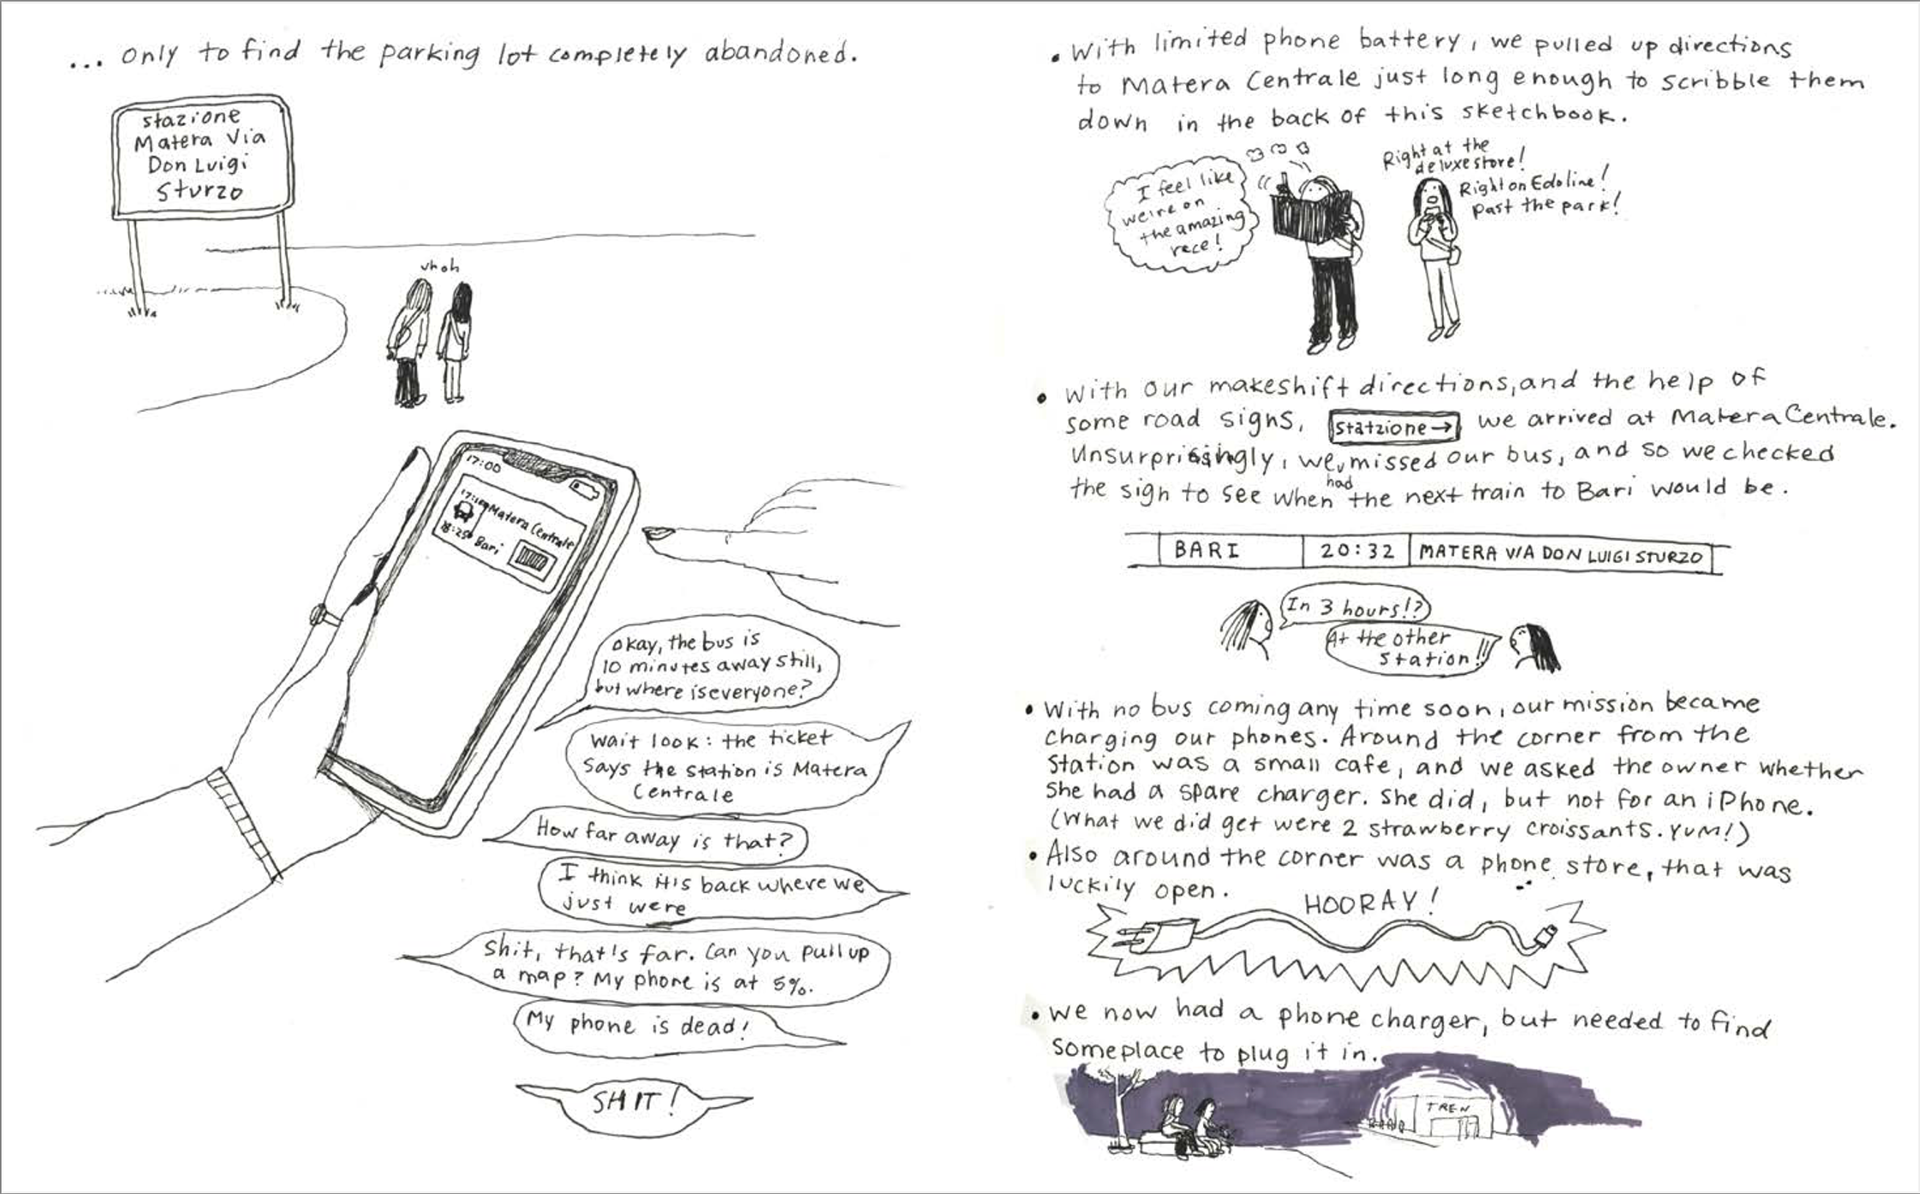 ... only to find the parking lot completely abandoned.
Stazione
Matera Via
Don Luigi
Sturzo
uhoh
17:00
Matera Centrale
Bari
okay, the bus is
10 minutes away still,
but where is everyone?
Wait look: the ticket
says the station is Matera
Centrale
How far away is that?
I think it's back where we
just were
Shit, that's far. Can you pull up
a map? My phone is at 5%.
My phone is dead!
SHIT!
• With limited phone battery, we pulled up directions
to Matera Centrale just long enough to scribble them
down in the back of this sketchbook.
I feel like
we're on
the amazing
race!
Right at the
deluxe store!
Right on Edoline!
Past the park!
• With our makeshift directions, and the help of
some road signs, Statzione → we arrived at Matera Centrale.
Unsurprisingly, we had missed our bus, and so we checked
the sign to see when the next train to Bari would be.
BARI 20:32 MATERA VIA DON LUIGI STURZO
In 3 hours!?
At the other
station!!
• With no bus coming any time soon, our mission became
charging our phones. Around the corner from the
station was a small cafe, and we asked the owner whether
she had a spare charger. She did, but not for an iPhone.
(What we did get were 2 strawberry croissants. YUM!)
• Also around the corner was a phone store, that was
luckily open.
HOORAY!
• We now had a phone charger, but needed to find
someplace to plug it in.
TREN